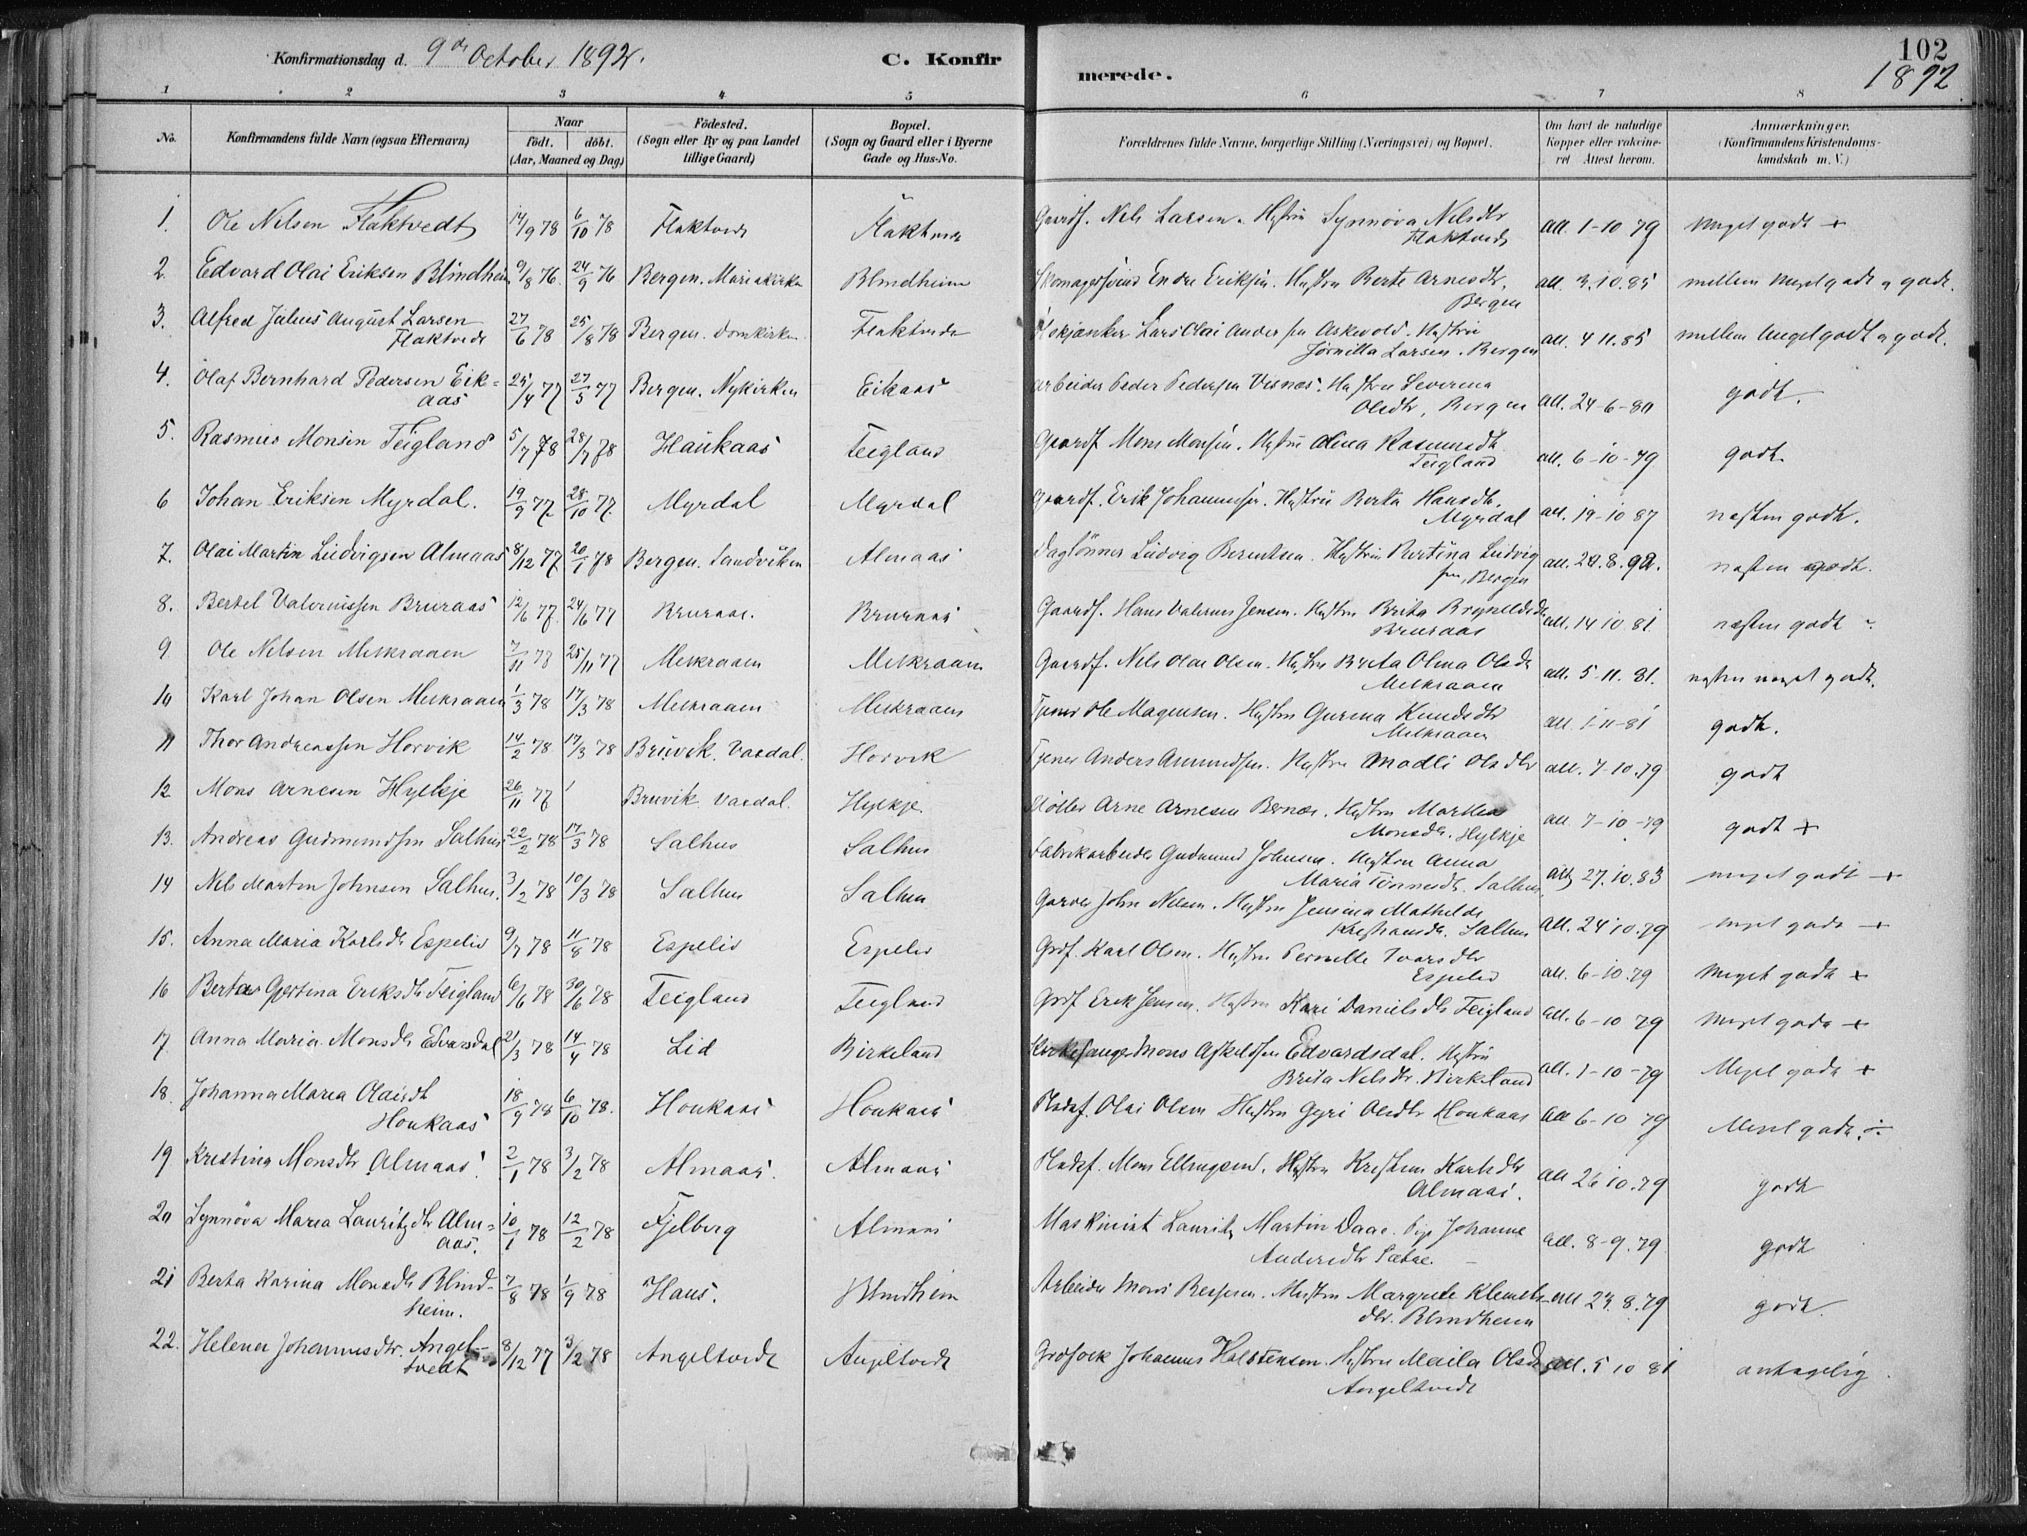 102
Konfirmationsdag d. 9de October 1892. C. Konfirmerede. 1892
1 2 3 4 5 6 7 8
No. Konfirmandens fulde Navn (ogsaa Efternavn) Naar Födt. döbt. (Aar, Maaned og Dag) Födested. (Sogn eller By og paa Landet tillige Gaard) Bopæl. (Sogn og Gaard eller i Byerne Gade og Hus-No. Forældrenes fulde Navne, borgerlige Stilling (Næringsvei) og Bopæl. Om havt de naturlige Kopper eller vakcineret Attest herom. Anmærkninger. (Konfirmandens Kristendomskundskab m. V.)
1. Ole Nilsen Flaktvedt 14/9 78 6/10 78 Flaktvedt Flaktvedt Gaardf. Nils Larsen. Hustru Synnöva Nilsdtr Flaktvedt att. 1-10 79 Meget godt +
2. Edvard Olai Eriksen Blindheim 9/8 76. 24/9 76 Bergen. Mariakirke Blindheim Skomagersvend Endre Eriksen. Hustru Berte Arnesdtr, Bergen att. 3.10.85 mellem Meget godt og godt.
3. Alfred Julius August Larsen Flaktvedt 27/6 78 25/8 78 Bergen. Domkirken Flaktvedt Lars Olai Andersen Askevold. Hustru Larsen. Bergen att. 4 11.85 mellem Meget godt og godt.
4. Olaf Bernhard Pedersen Eikaas 25/4 77 27/5 77 Bergen. Nykirken Eikaas Arbeider Peder Pedersen Visnes. Hustru Severina Olsdtr, Bergen att. 24-6-80 godt.
5. Rasmus Monsen Teigland 5/7 78 28/7 78 Haukaas Teigland Gaardf. Mons Monsen. Hustru Olina Rasmusdtr Teigland att. 6-10-79 godt.
6 Johan Eriksen Myrdal. 19/9 77. 28/10 77. Myrdal Myrdal Gaardf. Erik Johannesen. Hustru Berta Hansdtr. Myrdal att. 19-10 87 næsten godt.
7. Olai Martin Ludvigsen Almaas 8/12 77 20/1 78 Bergen. Sandviken Almaas Daglönner Ludvig Berentsen. Hustru Bertina Ludvigsen, Bergen att. 24.8.92. næsten godt.
8. Bertel Valernissen Bruraas 12/6 77. 24/6 77 Bruraas. Bruraas Gaardf. Hans Valernes Jensen. Hustru Brita Brynildsdtr Bruraas att. 14 10 81. næsten godt
9 Ole Nilsen Melkraaen 7/11 78 25/11 77 Melkraaen Melkraaen Gaardf. Nils Olai Olsen. Hustru Berta Olina Olsdtr Melkraaen att. 5-11.81. næsten meget godt.
10 Karl Johan Olsen Melkraaen 1/3 78 17/3 78 Melkraaen Melkraaen Tjener Ole Magnusen. Hustru Gurina Knudsdtr Melkraaen att. 1-11-81 godt.
11 Thor Andreassen Horvik 14/2 78 17/3 78 Bruvik. Vaxdal. Horvik Tjener Anders Amundsen. Hustru Madli Olsdtr att. 7-10.79 godt
12 Mons Arnesen Hylkje 26/11 77 Bruvik Vaxdal. Hylkje. Möller Arne Arnesen Bernes. Hustru Marthea Monsdtr. Hylkje att. 7-10-79 godt +
13. Andreas Gudmundsen Salhus 22/2 78 17/3 78 Salhus Salhus Fabrikarbeider Gudmund Johnsen. Hustru Anna Maria Tönnesdtr. Salhus att. 27.10.83 meget godt +
14 Nils Martin Johnsen Salhus. 3/2 78 10/3 78 Salhus Salhus Garver John Nilsen. Hustru Jensina Mathilde Kristiansdtr. Salhus att. 24 10.79 meget godt +
15. Anna Maria Karlsdtr Espelid 9/7 78 11/8 78 Espelid Espelid Grdf. Karl Olsen. Hustru Pernille Ivarsdtr Espelid att. 6-10.79 Meget godt +
16 Berta Gjertina Eriksdtr Teigland 6/6 78 30/6 78 Teigland Teigland Grdf Erik Jensen. Hustru Kari Danielsdtr Teigland att. 6-10 79 Meget godt +
17 Anna Maria Monsdtr Edvarsdal 21/3 78 14/4 78 Lid Birkeland Kirkesanger Mons Askeldsen Edvardsdal. Hustru Brita Nilsdtr. Birkeland att. 1-10-79 Meget godt +
18. Johanna Maria Olaisdtr Houkaas 18/9 78 6/10 78. Houkaas Houkaas Pladsf. Olai Olsen Hustru Gyri Olsdtr Houkaas att 6-10 79 Meget godt
19 Kristina Monsdtr Almaas. 2/1 78 3/2 78 Almaas. Almaas Pladsf. Mons Ellingsen. Hustru Kristina Karlsdtr Almaas. att 26 10.79 godt
20 Synnöva Maria Lauritzdtr Almaas. 10/1 78 12/2 78 Fjelberg Almaas Maskinist Lauritz Martin Daae. Pige Johanne Andersdtr Sætre. att. 8-9.79. godt
21 Berta Karina Monsdtr Blindheim. 7/8 78 1/9 78 Haus. Blindheim Arbeider Mons Hustru Margrete Klemetsdtr. Blindheim att 23.8.79 godt.
22. Helena Johannesdtr. Angeltvedt 8/12 77 3/2 78 Angeltvedt Angeltvedt Grdfolk Johannes Halstensen. Hustru Maila Olsdtr Angeltvedt att. 5 10 81 antagelig.